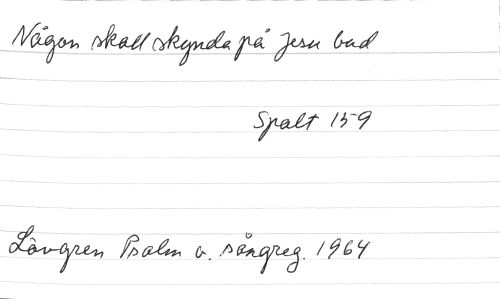 Någon skall skynda på Jesu bud
Spalt 159
Lövgren Psalm o. sångreg. 1964